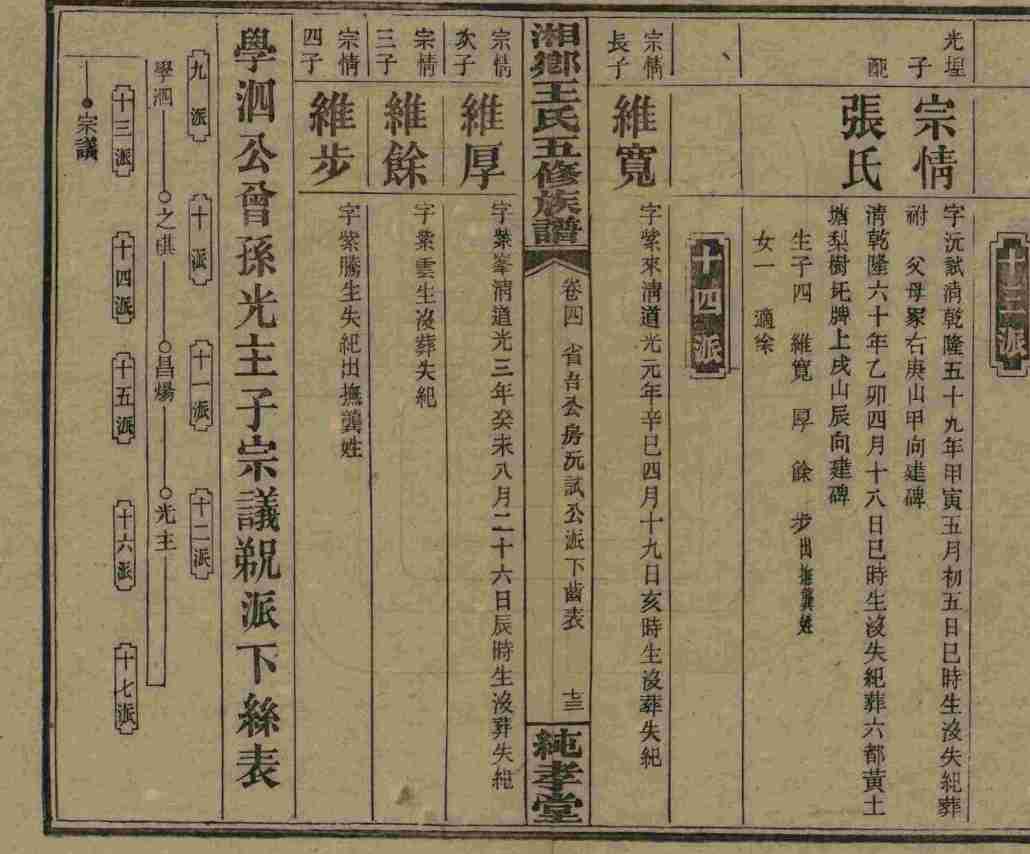 十三派
光埕子
宗情
字沅試淸乾隆五十九年甲寅五月初五日巳時生沒失紀葬
祔　父母冢右庚山甲向建碑
配
張氏
淸乾隆六十年乙卯四月十八日巳時生沒失紀葬六都黃土
塘梨樹坵牌上戌山辰向建碑
生子四　維寬　厚　餘　步出撫龔姓
女一　適徐
十四派
宗情長子
維寬
字紫來淸道光元年辛巳四月十九日亥時生沒葬失紀
湘鄉王氏五修族譜
卷四　省吾公房沅試公派下齒表
十三
純孝堂
宗情次子
維厚
字紫峯淸道光三年癸未八月二十六日辰時生沒葬失紀
宗情三子
維餘
字紫雲生沒葬失紀
宗情四子
維步
字紫勝生失紀出撫龔姓
學泗公曾孫光主子宗議㷌派下絲表
九派
十派
十一派
十二派
學泗
之祺
昌煬
光主
十三派
十四派
十五派
十六派
十七派
宗議